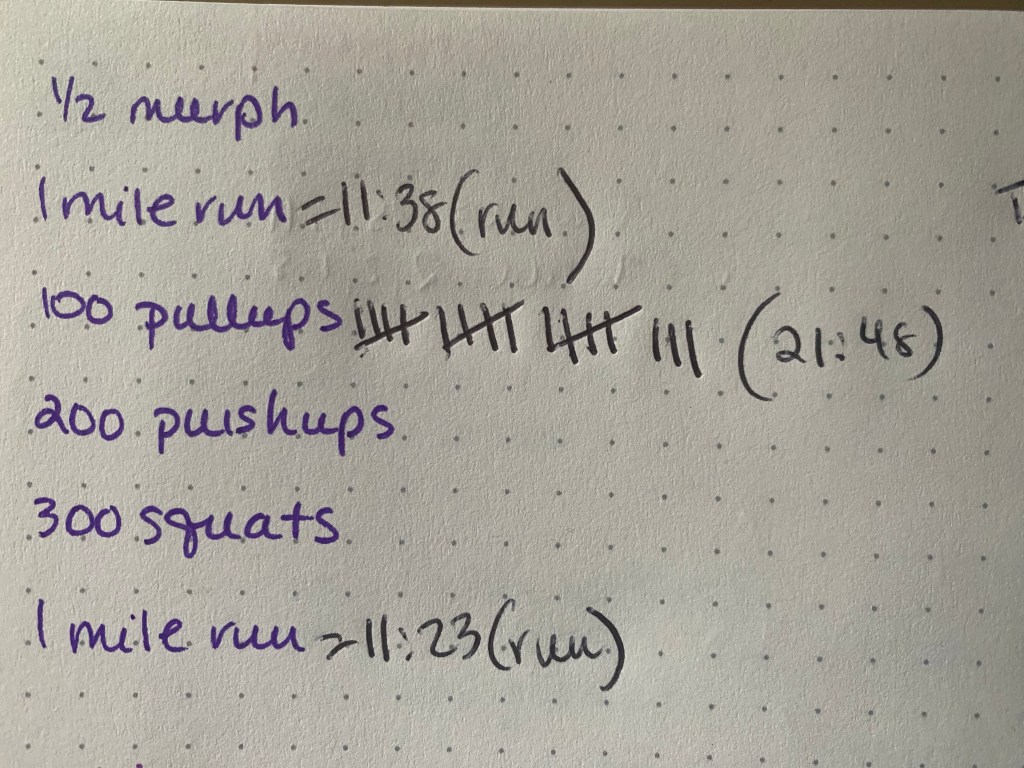 1/2 murph
1 mile run = 11:38 (run)
100 pullups 卌 卌 卌 ||| (21:48)
200 pushups
300 squats
1 mile run = 11:23 (run)